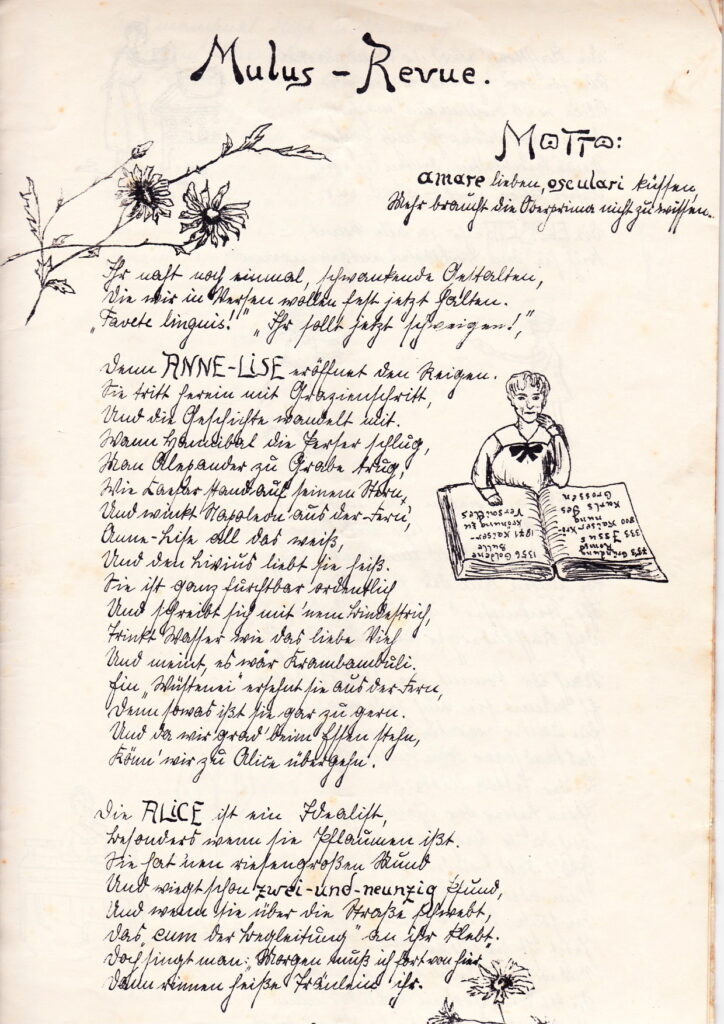 Mulus - Revue.
Motto:
amare lieben, osculari küssen,
Mehr braucht die Oberprima nicht zu wissen.
Ihr naht noch einmal, schwankende Gestalten,
Die wir in Versen wollen fest jetzt halten.
„Favete linguis!" „Ihr sollt jetzt schweigen!,"
Denn ANNE-LISE eröffnet den Reigen.
Sie tritt herein mit Grazienschritt,
Und die Geschichte wandelt mit.
Wann Hannibal die Perser schlug,
Man Alexander zu Grabe trug,
Wie Caesar stand auf seinem Stern,
Und winkt Napoleon aus der Fern',
Anne-Lise all das weiß,
Und den Livius liebt sie heiß.
Sie ist ganz furchtbar ordentlich
Und schreibt sich mit 'nem Bindestrich,
Trinkt Wasser wie das liebe Vieh
Und meint, es wär Krambambuli.
Ein „Wüstenei" ersehnt sie aus der Fern,
Denn sowas ißt sie gar zu gern.
Und da wir grad' beim Essen stehn,
Könn' wir zu Alice übergehn.
753 Gründung Roms
333 Issus
800 Kaiserkrönung Karls des Grossen
1356 Goldene Bulle
1871 Kaiserkrönung zu Versailles
Die ALICE ist ein Idealist,
Besonders wenn sie Pflaumen ißt.
Sie hat 'nen riesengroßen Mund
Und wiegt schon zwei-und-neunzig Pfund,
Und wenn sie über die Straße schwebt,
Das „cum der Begleitung" an ihr klebt.
Doch singt man: „Morgen muß ich fort von hier,
Dann rinnen heiße Tränlein ihr.